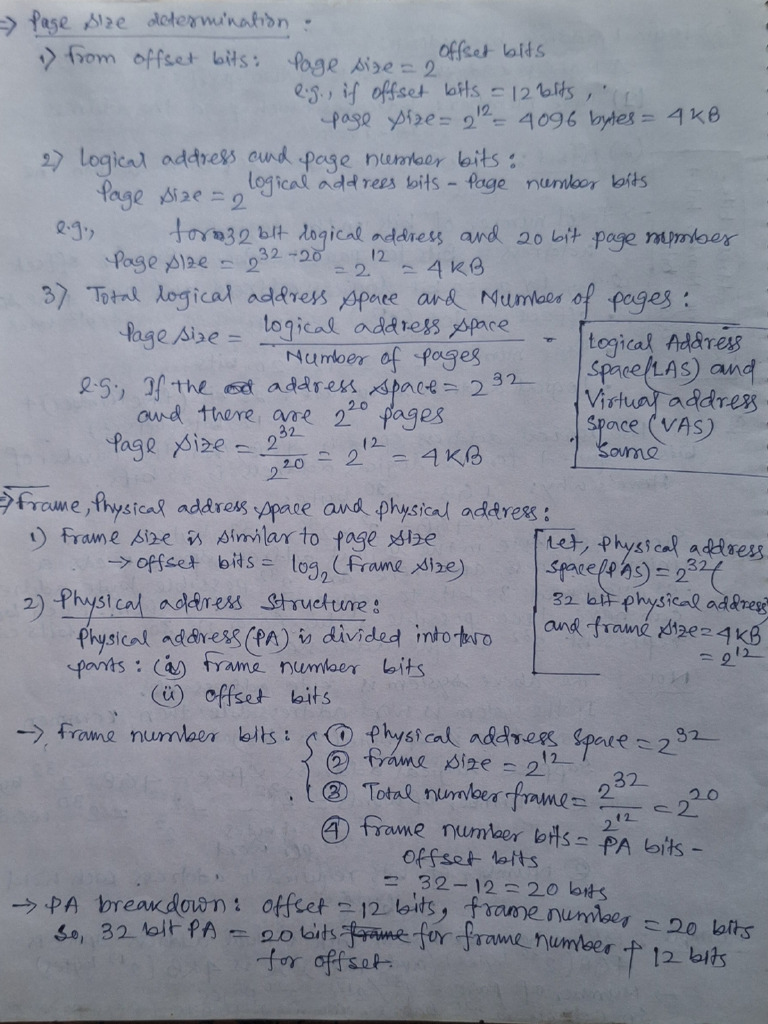 ⇒ Page size determination :
1) From offset bits: Page size = 2^offset bits
e.g., if offset bits = 12 bits,
page size = 2^12 = 4096 bytes = 4 KB
2) Logical address and page number bits :
Page size = 2^logical address bits - Page number bits
e.g., for 32 bit logical address and 20 bit page number
Page size = 2^32-20 = 2^12 = 4 KB
3) Total logical address space and Number of pages :
Page size = Logical address space / Number of pages
e.g., If the address space = 2^32
and there are 2^20 pages
Page size = 2^32 / 2^20 = 2^12 = 4 KB
Logical Address
Space (LAS) and
Virtual address
space (VAS)
same
⇒ Frame, Physical address space and physical address :
1) Frame size is similar to page size
→ offset bits = log₂ (Frame size)
2) Physical address structure :
Physical address (PA) is divided into two
parts : (i) Frame number bits
(ii) offset bits
Let, physical address
space (PAS) = 2^32 (
32 bit physical address)
and frame size = 4 KB
= 2^12
→ Frame number bits : { ① Physical address space = 2^32
② Frame size = 2^12
③ Total number frame = 2^32 / 2^12 = 2^20
④ Frame number bits = PA bits -
offset bits
= 32 - 12 = 20 bits
→ PA breakdown : offset = 12 bits, frame number = 20 bits
so, 32 bit PA = 20 bits frame for frame number + 12 bits
for offset.